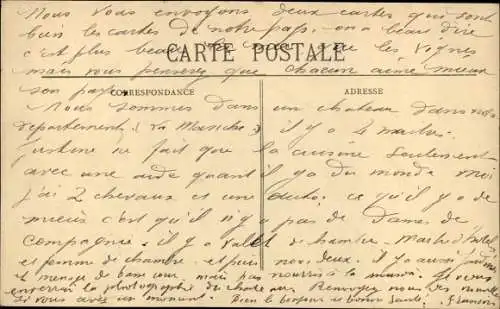 Nous vous envoyons deux cartes qui sont
bien les cartes de notre pays. on a beau dire
c'est plus beau que les Vignes
CARTE POSTALE
mais vous penserez que chacun aime mieux
son pays.
CORRESPONDANCE
ADRESSE
Nous sommes dans un chateau dans notre
departement (La Manche) il y a 4 maitres.
Justine ne fait que la cuisine seulement
avec une aide quant il y a du monde moi
j'ai 2 chevaux et une auto. ce qu'il y a de
mieux c'est qu'il n'y a pas de Dames de
Compagnie. il y a Valet de chambre. Maitre d'hotel
et femme de chambre. et puis nous deux. il y a aussi
et menage de basse cour mais pas nourris à la maison.
la photographie du chateau Renvoyez nous des nouvelles
si vous avez un moment. Bien le bonjour et bonne Santé.